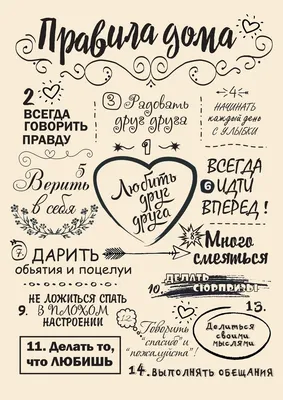 Правила дома
1
Любить
друг
друга
2
ВСЕГДА
ГОВОРИТЬ
ПРАВДУ
3 Радовать
друг друга
4
НАЧИНАТЬ
каждый день
С УЛЫБКИ
5
Верить
в себя
ВСЕГДА
6 ИДТИ
ВПЕРЕД!
7. ДАРИТЬ
обьятия и поцелуи
8.
Много
смеяться
НЕ ЛОЖИТЬСЯ СПАТЬ
9. В ПЛОХОМ
НАСТРОЕНИИ
ДЕЛАТЬ
10. СЮРПРИЗЫ
11. Делать то,
что ЛЮБИШЬ
12. Говорить
"спасибо" и
"пожалуйста"!
13.
Делиться
своими
мыслями
14. ВЫПОЛНЯТЬ ОБЕЩАНИЯ